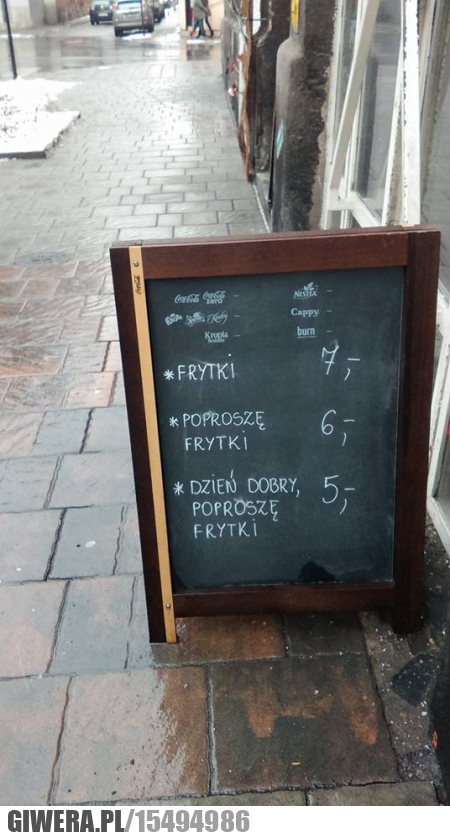 Coca-Cola
Coca-Cola Coca-Cola zero -
NESTEA -
Cappy -
Kropla Beskidu -
burn -
* FRYTKI 7,-
* POPROSZĘ 6,-
FRYTKI
* DZIEŃ DOBRY, 5,-
POPROSZĘ
FRYTKI
GIWERA.PL/15494986